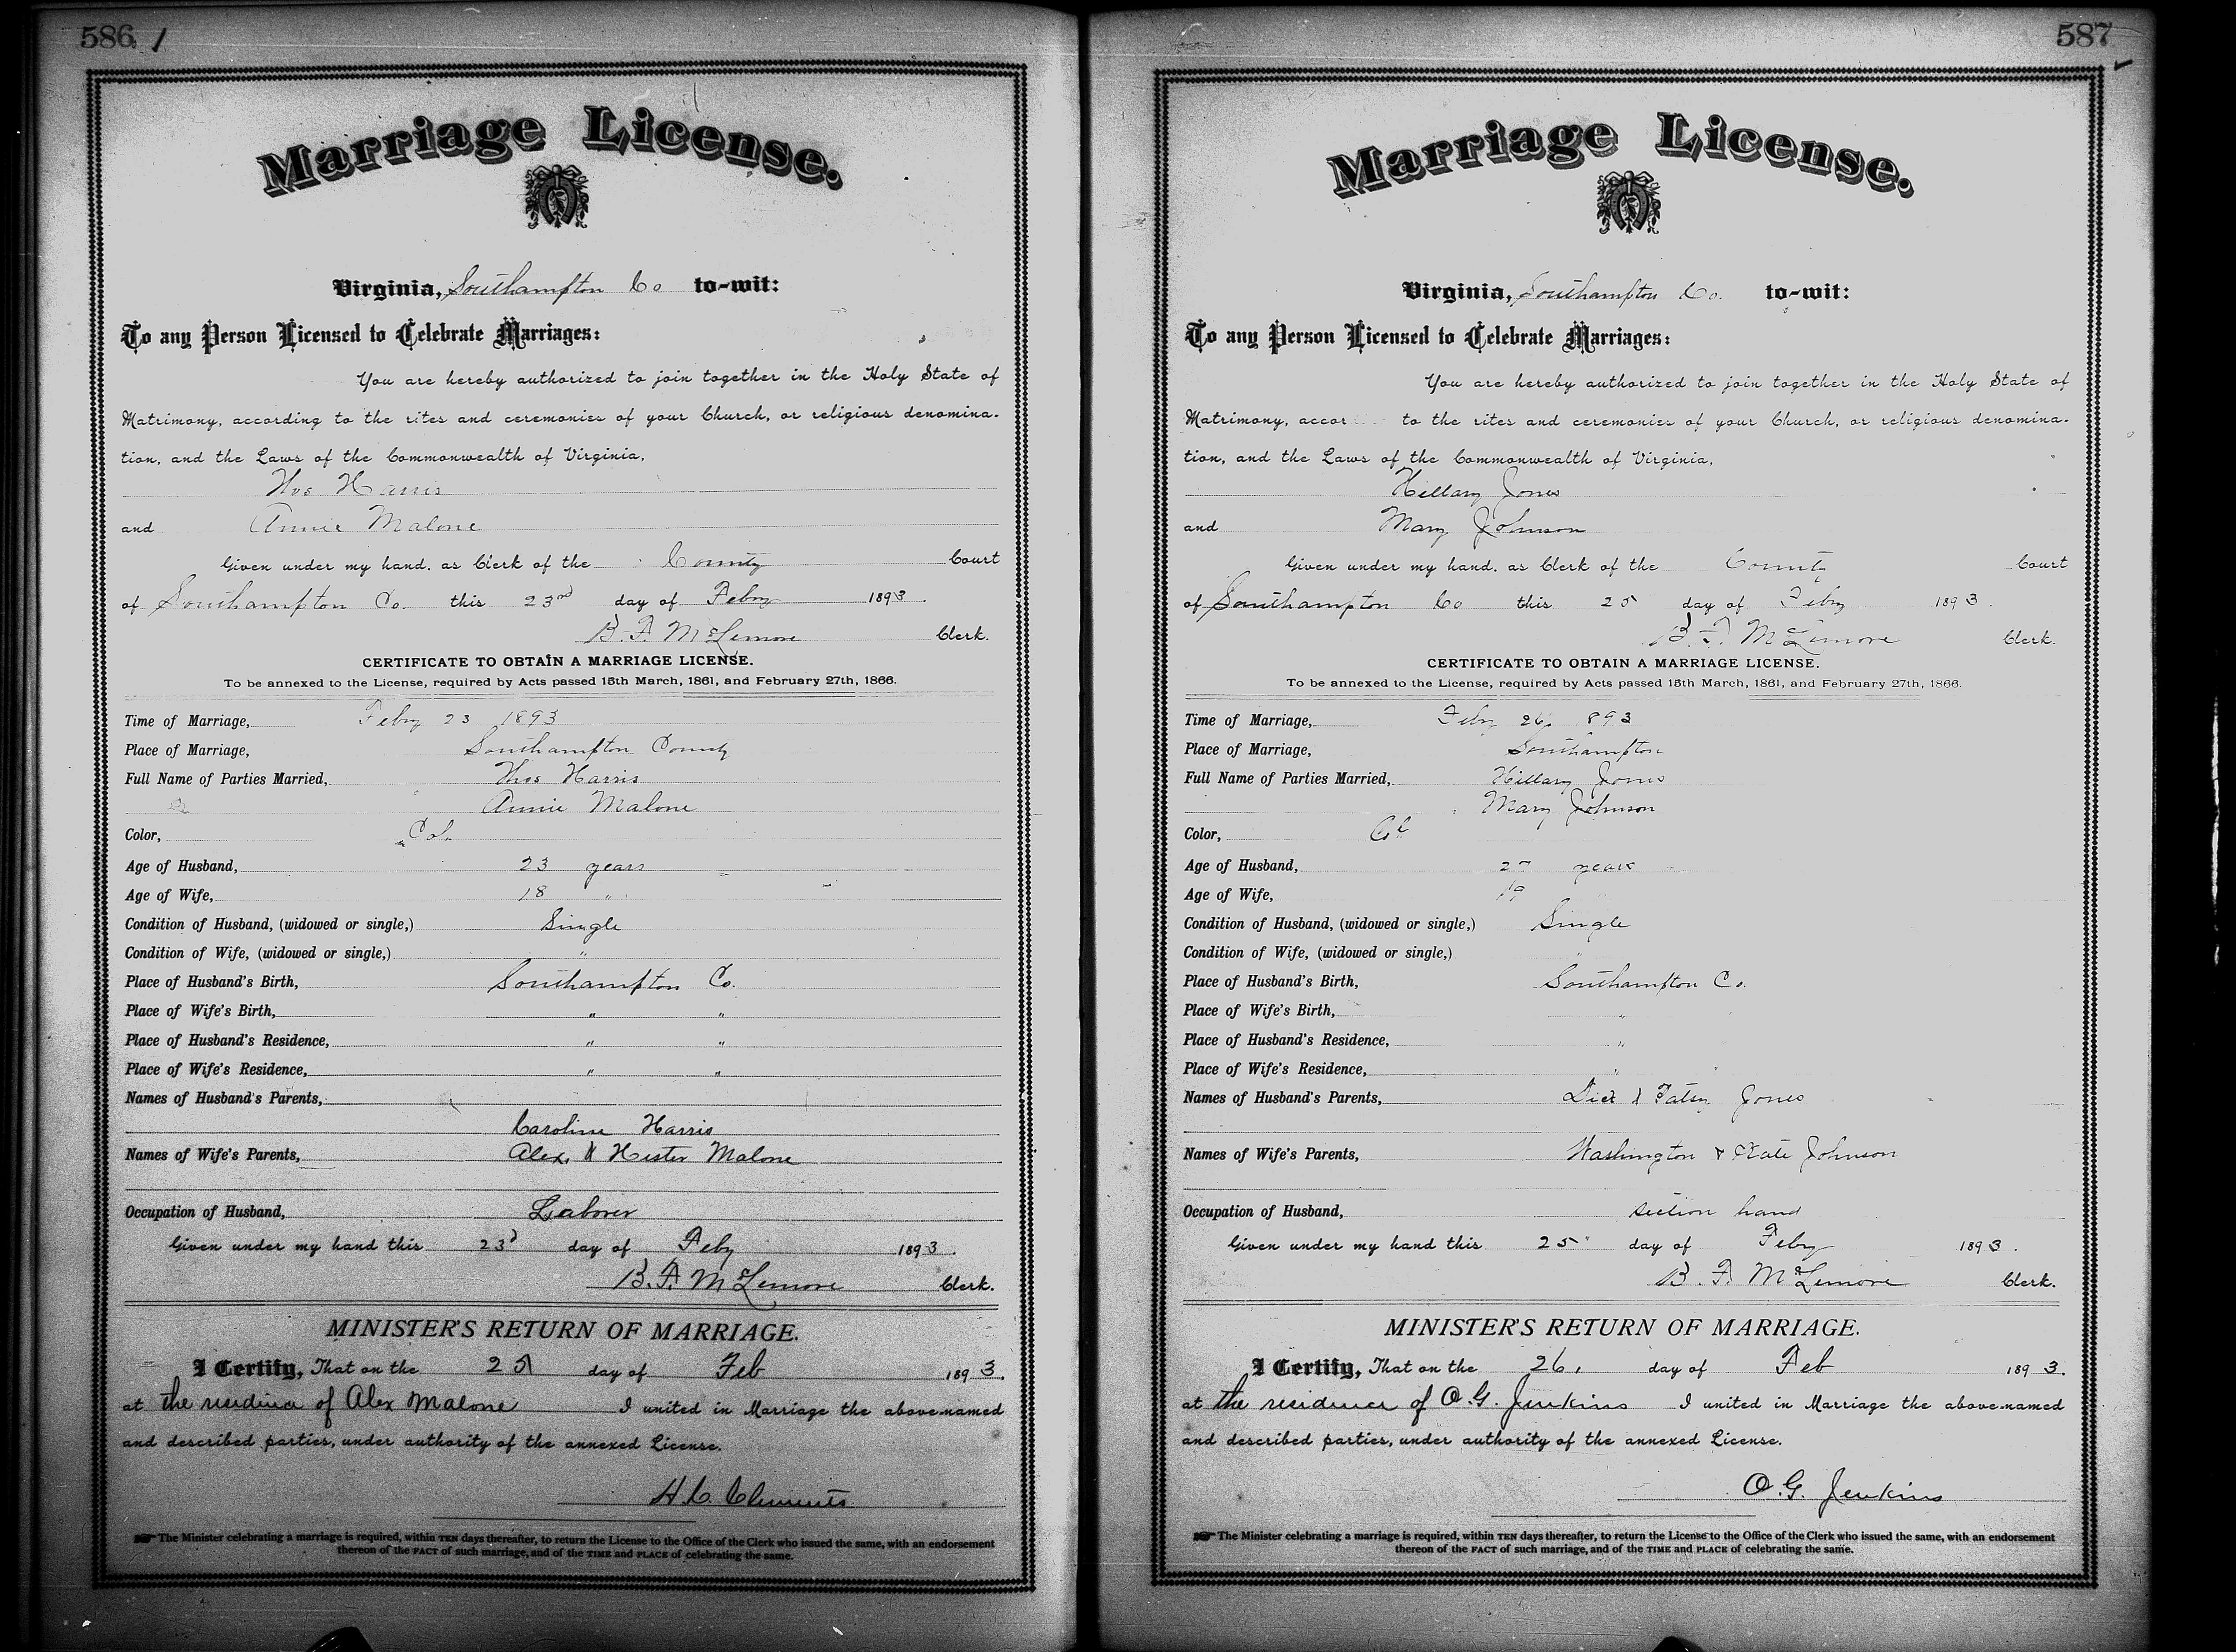 586
Marriage License.
Virginia, Southampton Co to-wit:
To any Person Licensed to Celebrate Marriages:
You are hereby authorized to join together in the Holy State of
Matrimony, according to the rites and ceremonies of your Church, or religious denomina-
tion, and the Laws of the Commonwealth of Virginia,
Thos Harris
and Annie Malone
Given under my hand, as Clerk of the County Court
of Southampton Co. this 23rd day of Febry 1893.
B. F. McLemore Clerk.
CERTIFICATE TO OBTAIN A MARRIAGE LICENSE.
To be annexed to the License, required by Acts passed 15th March, 1861, and February 27th, 1866.
Time of Marriage, Febry 23 1893
Place of Marriage, Southampton County
Full Name of Parties Married, Thos Harris
Annie Malone
Color, Col.
Age of Husband, 23 years
Age of Wife, 18 "
Condition of Husband, (widowed or single,) Single
Condition of Wife, (widowed or single,) "
Place of Husband's Birth, Southampton Co.
Place of Wife's Birth, " "
Place of Husband's Residence, " "
Place of Wife's Residence, " "
Names of Husband's Parents,
Caroline Harris
Names of Wife's Parents, Alex. & Hester Malone
Occupation of Husband, Laborer
Given under my hand this 23d day of Feby 1893.
B. F. McLemore Clerk.
MINISTER'S RETURN OF MARRIAGE.
I Certify, That on the 25 day of Feb 1893.
at the residence of Alex Malone I united in Marriage the above-named
and described parties, under authority of the annexed License.
H. C. Clements
The Minister celebrating a marriage is required, within TEN days thereafter, to return the License to the Office of the Clerk who issued the same, with an endorsement
thereon of the FACT of such marriage, and of the TIME and PLACE of celebrating the same.
587
Marriage License.
Virginia, Southampton Co. to-wit:
To any Person Licensed to Celebrate Marriages:
You are hereby authorized to join together in the Holy State of
Matrimony, accor to the rites and ceremonies of your Church, or religious denomina-
tion, and the Laws of the Commonwealth of Virginia,
Hillary Jones
and Mary Johnson
Given under my hand, as Clerk of the County Court
of Southampton Co this 25 day of Febry 1893.
B. F. McLemore Clerk.
CERTIFICATE TO OBTAIN A MARRIAGE LICENSE.
To be annexed to the License, required by Acts passed 15th March, 1861, and February 27th, 1866.
Time of Marriage, Febry 26 893
Place of Marriage, Southampton
Full Name of Parties Married, Hillary Jones
Mary Johnson
Color, Col
Age of Husband, years
Age of Wife, 19
Condition of Husband, (widowed or single,) Single
Condition of Wife, (widowed or single,) "
Place of Husband's Birth, Southampton Co.
Place of Wife's Birth, "
Place of Husband's Residence, "
Place of Wife's Residence, "
Names of Husband's Parents, Dick & Patsy Jones
Names of Wife's Parents, Washington & Kate Johnson
Occupation of Husband, section hand
Given under my hand this 25 day of Febry 1893.
B. F. McLemore Clerk.
MINISTER'S RETURN OF MARRIAGE.
I Certify, That on the 26, day of Feb 1893.
at the residence of O. G. Jenkins I united in Marriage the above-named
and described parties, under authority of the annexed License.
O. G. Jenkins
The Minister celebrating a marriage is required, within TEN days thereafter, to return the License to the Office of the Clerk who issued the same, with an endorsement
thereon of the FACT of such marriage, and of the TIME and PLACE of celebrating the same.